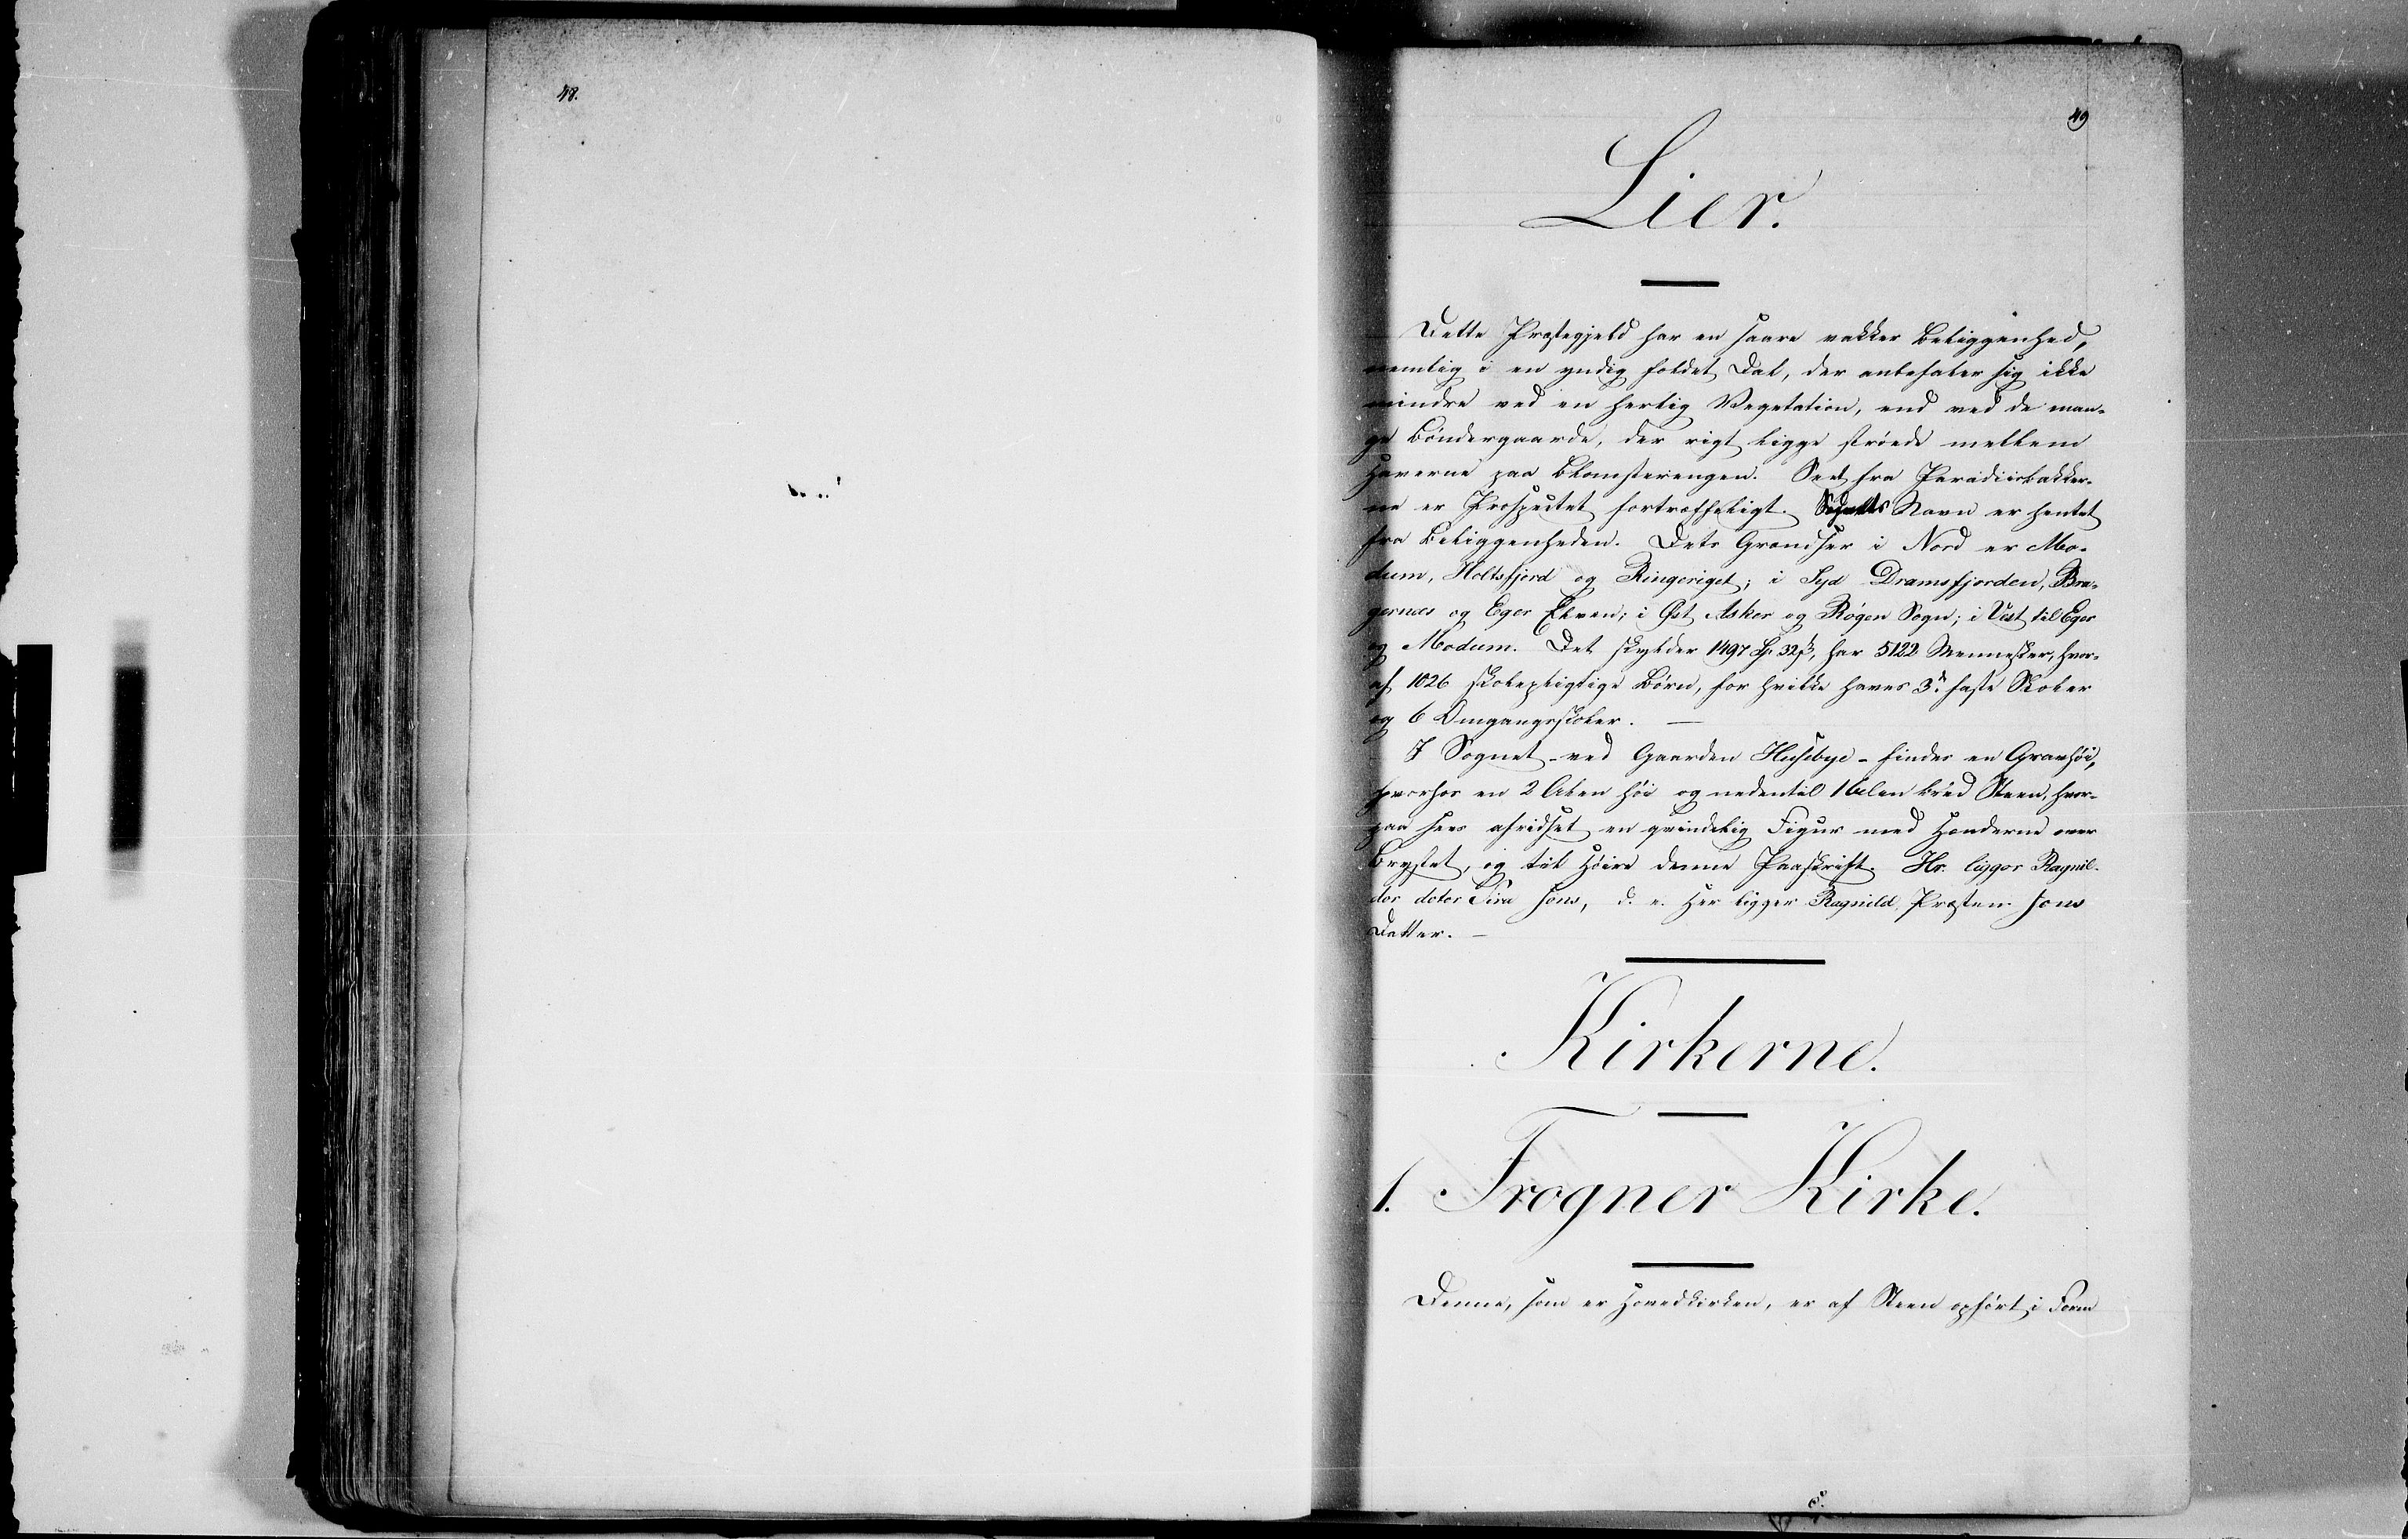 48.
49
Lier.
Dette Præstegjeld har en saare vakker Beliggenhed,
nemlig i en yndig foldet Dal, der anbefaler sig ikke
mindre ved en herlig Vegetation, end ved de man-
ge Böndergaarde, der rigt ligge ströede mellem
Haverne paa Blomsterengen. Seet fra Paradiisbakker-
ne er Prospectet fortræffeligt. Navn er hentet
fra Beliggenheden. Dets Grændser i Nord er Mo-
dum, Holtsfjord og Ringeriget; i Syd Dramsfjorden, Bra-
gernæs og Eger Elven; i Øst Asker og Røgen Sogn; i Vest til Eger
og Modum. Det skylder 1497 32 har 5122 Mennesker, hvor-
af 1026 skolepligtige Börn, for hvilke haves 3de faste Skoler
og 6 Omgangsskoler. —
I Sognet - ved Gaarden Husebye - findes en Gravhöi,
hvorhos en 2 Alen höi og nedentil 1 Alen bred Steen, hvor-
paa sees afridset en qvindelig Figur med Hænderne over
Brystet, og til Höire denne Paaskrift. Hr. liggor Ragnil-
dor dotor Sira Jons, d. e. Her ligger Ragnild, Præsten Jons
Datter. —
Kirkerne.
1. Frogner Kirke.
Denne, som er Hovedkirken, er af Steen opfört i Form